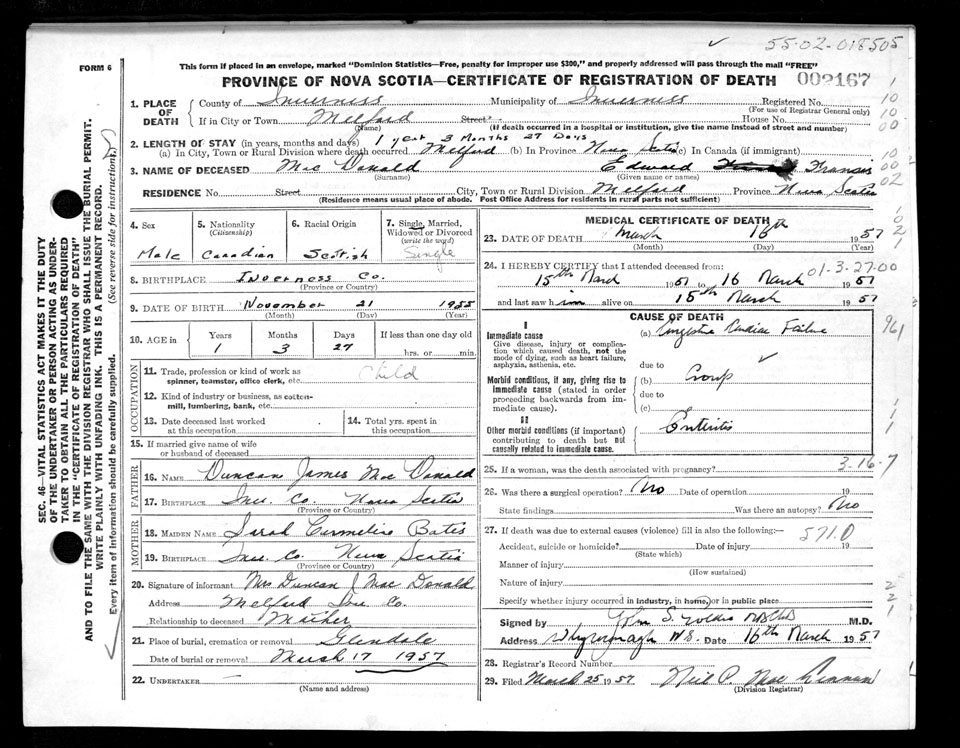 55-02-018505
FORM 6
This form if placed in an envelope, marked "Dominion Statistics—Free, penalty for improper use $300," and properly addressed will pass through the mail "FREE"
PROVINCE OF NOVA SCOTIA—CERTIFICATE OF REGISTRATION OF DEATH
002167
1. PLACE OF DEATH
County of Inverness Municipality of Inverness Registered No.
(For use of Registrar General only)
If in City or Town Melford Street House No.
(Name) (If death occurred in a hospital or institution, give the name instead of street and number)
2. LENGTH OF STAY (in years, months and days) 1 year 3 Months 27 Days
(a) In City, Town or Rural Division where death occurred Melford (b) In Province Nova Scotia (c) In Canada (if immigrant)
3. NAME OF DECEASED Mac Donald Edward Francis
(Surname) (Given name or names)
RESIDENCE No. Street City, Town or Rural Division Melford Province Nova Scotia
(Residence means usual place of abode. Post Office Address for residents in rural parts not sufficient)
4. Sex
Male
5. Nationality
(Citizenship)
Canadian
6. Racial Origin
Scottish
7. Single, Married, Widowed or Divorced
(write the word)
Single
8. BIRTHPLACE Inverness Co.
(Province or Country)
9. DATE OF BIRTH November 21 1955
(Month) (Day) (Year)
10. AGE in Years Months Days If less than one day old
1 3 27 hrs. or min.
OCCUPATION
11. Trade, profession or kind of work as
spinner, teamster, office clerk, etc. Child
12. Kind of industry or business, as cotton-
mill, lumbering, bank, etc.
13. Date deceased last worked
at this occupation
14. Total yrs. spent in
this occupation
15. If married give name of wife
or husband of deceased
FATHER
16. NAME Duncan James Mac Donald
17. BIRTHPLACE Inv. Co. Nova Scotia
(Province or Country)
MOTHER
18. MAIDEN NAME Sarah Bates
19. BIRTHPLACE Inv. Co. Nova Scotia
(Province or Country)
20. Signature of informant Mrs Duncan J Mac Donald
Address Melford Inv Co.
Relationship to deceased Mother
21. Place of burial, cremation or removal Glendale
Date of burial or removal March 17 1957
22. UNDERTAKER
(Name and address)
MEDICAL CERTIFICATE OF DEATH
23. DATE OF DEATH March 16th 1957
(Month) (Day) (Year)
24. I HEREBY CERTIFY that I attended deceased from:
01-3-27-00
15th March 1957 to 16 March 1957
and last saw him alive on 15th March 1957
CAUSE OF DEATH
I
Immediate cause
Give disease, injury or complica-
tion which caused death, not the
mode of dying, such as heart failure,
asphyxia, asthenia, etc.
(a) Congestive Cardiac Failure
due to
Morbid conditions, if any, giving rise to
immediate cause (stated in order
proceeding backwards from im-
mediate cause).
(b) Croup
due to
(c)
II
Other morbid conditions (if important)
contributing to death but not
causally related to immediate cause.
Enteritis
25. If a woman, was the death associated with pregnancy? 3-16-7
26. Was there a surgical operation? No Date of operation 19
State findings Was there an autopsy? No
27. If death was due to external causes (violence) fill in also the following:— 571.0
Accident, suicide or homicide? Date of injury 19
(State which)
Manner of injury
(How sustained)
Nature of injury
Specify whether injury occurred in industry, in home, or in public place
Signed by John S. M.D.
Address Whycocomagh N.S. Date 16th March 1957
28. Registrar's Record Number
29. Filed March 25 1957 Neil P. Mac Lennan
(Division Registrar)
SEC. 46—VITAL STATISTICS ACT MAKES IT THE DUTY
OF THE UNDERTAKER OR PERSON ACTING AS UNDER-
TAKER TO OBTAIN ALL THE PARTICULARS REQUIRED
IN THE "CERTIFICATE OF REGISTRATION OF DEATH"
AND TO FILE THE SAME WITH THE DIVISION REGISTRAR WHO SHALL ISSUE THE BURIAL PERMIT.
WRITE PLAINLY WITH UNFADING INK. THIS IS A PERMANENT RECORD.
Every item of information should be carefully supplied. (See reverse side for instructions.)
1
10
10
00
10
00
02
10
2
1
961
1
1
1
2
2
1